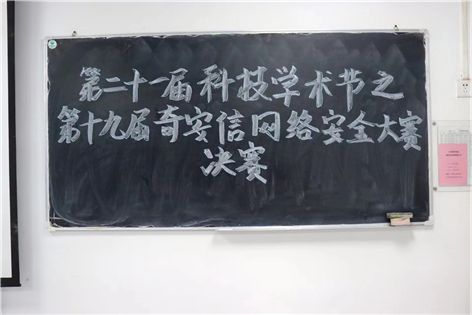 第二十一届科技学术节之
第十九届奇安信网络安全大赛
决赛